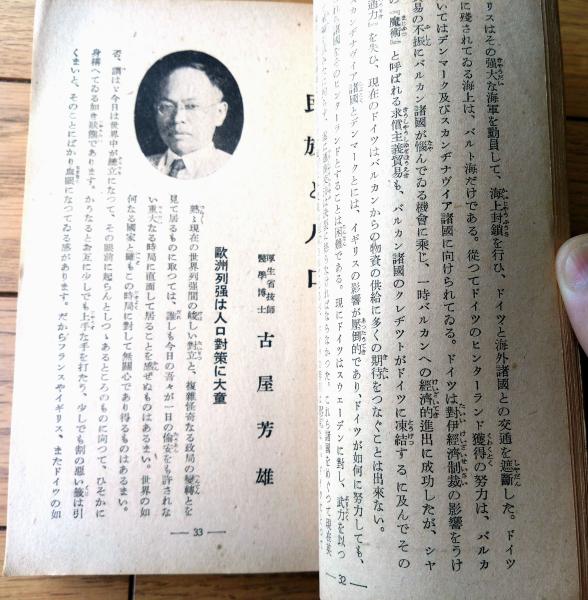 リスはその强大な海軍を動員して、海上封鎖を行ひ、ドイツと海外諸國との交通を遮斷した。ドイツ
に殘されてゐる海上は、バルト海だけである。從つてドイツのヒンターランド獲得の努力は、バルカ
いてはデンマーク及びスカンヂナヴイア諸國に向けられてゐる。ドイツは對伊經濟制裁の影響をうけ
易の不振にバルカン諸國が惱んでゐる機會に乘じ、一時バルカンへの經濟的進出に成功したが、シヤ
の『魔術』と呼ばれる求償主義貿易も、バルカン諸國のクレヂツトがドイツに凍結するに及んでその
通力』を失ひ、現在のドイツはバルカンからの物資の供給に多くの期待をつなぐことは出來ない。
スカンヂナヴイア諸國とデンマークとには、イギリスの影響が壓倒的であり、ドイツが如何に努力しても、
諸國をそのヒンターランドとすることは困難である。現にドイツはスウェーデンに對し、武力を以つ
— 32 —
民族と人口
厚生省技師
醫學博士
古屋芳雄
歐洲列强は人口對策に大童
熟〻現在の世界列强間の峻しい對立と、複雜怪奇なる政局の變轉とを
見て居るものに取つては、誰しも今日の吾々が一日の偸安をも許されな
い重大なる時局に直面して居ることを感ぜぬものはあるまい。世界の如
何なる國家と雖もこの時局に對して無關心であり得るものはあるまい。
否、謂はゞ今日は世界中が總立になつて、その眼前に起らんとしつゝあるところのものに向つて、ひそかに
身構へてゐる如き狀態であります。かうなるとお互に少しでも上手な手を打たう、少しでも割の惡い籤は引
くまいと、そのことにばかり血眼になつてゐる感があります。だからフランスやイギリス、またドイツの如
— 33 —